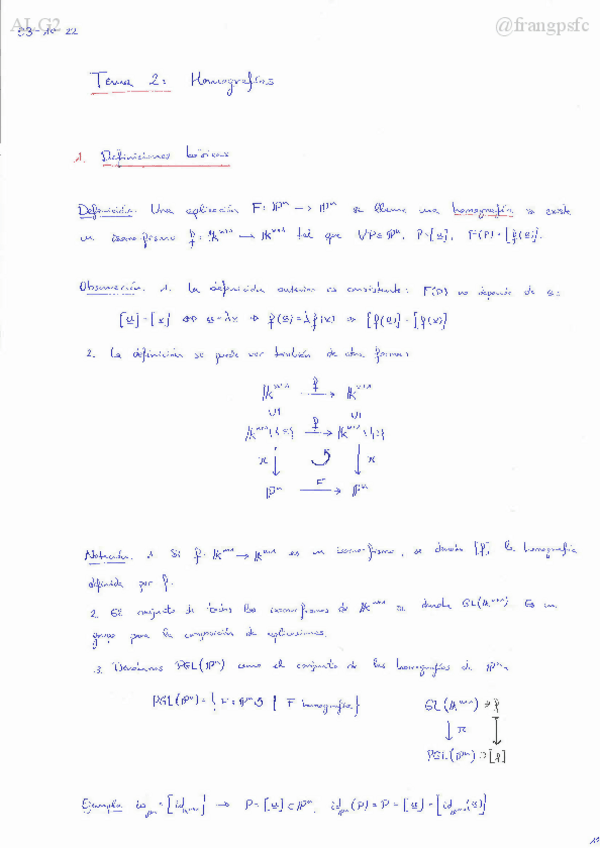 ALG2 @frangpsfc
03-10-22
Tema 2: Homografías
1. Definiciones básicas
Definición. Una aplicación F: ℙⁿ → ℙⁿ se llama una homografía si existe
un isomorfismo f: 𝕜ⁿ⁺¹ → 𝕜ⁿ⁺¹ tal que ∀P∈ℙⁿ, P=[u], F(P)=[f(u)].
Observación. 1. La definición anterior es consistente: F(P) no depende de u:
[u]=[v] ⇔ u=λv ⇒ f(u)=λf(v) ⇒ [f(u)]=[f(v)]
2. La definición se puede ver también de otra forma:
𝕜ⁿ⁺¹ f → 𝕜ⁿ⁺¹
∪I ∪I
𝕜ⁿ⁺¹\{0} f → 𝕜ⁿ⁺¹\{0}
π ↓ ↺ ↓ π
ℙⁿ F → ℙⁿ
Notación. 1. Si f: 𝕜ⁿ⁺¹ → 𝕜ⁿ⁺¹ es un isomorfismo, se denota [f] la homografía
definida por f.
2. El conjunto de todos los isomorfismos de 𝕜ⁿ⁺¹ se denota GL(𝕜ⁿ⁺¹). Es un
grupo para la composición de aplicaciones.
3. Denotamos PGL(ℙⁿ) como el conjunto de las homografías de ℙⁿ.
PGL(ℙⁿ) = { F: ℙⁿ↺ | F homografía }
GL(𝕜ⁿ⁺¹) ∋ f
↓ π
PGL(ℙⁿ) ∋ [f]
Ejemplo id_ℙⁿ = [id_𝕜ⁿ⁺¹] → P=[u]∈ℙⁿ, id_ℙⁿ(P) = P = [u] = [id_𝕜ⁿ⁺¹(u)]